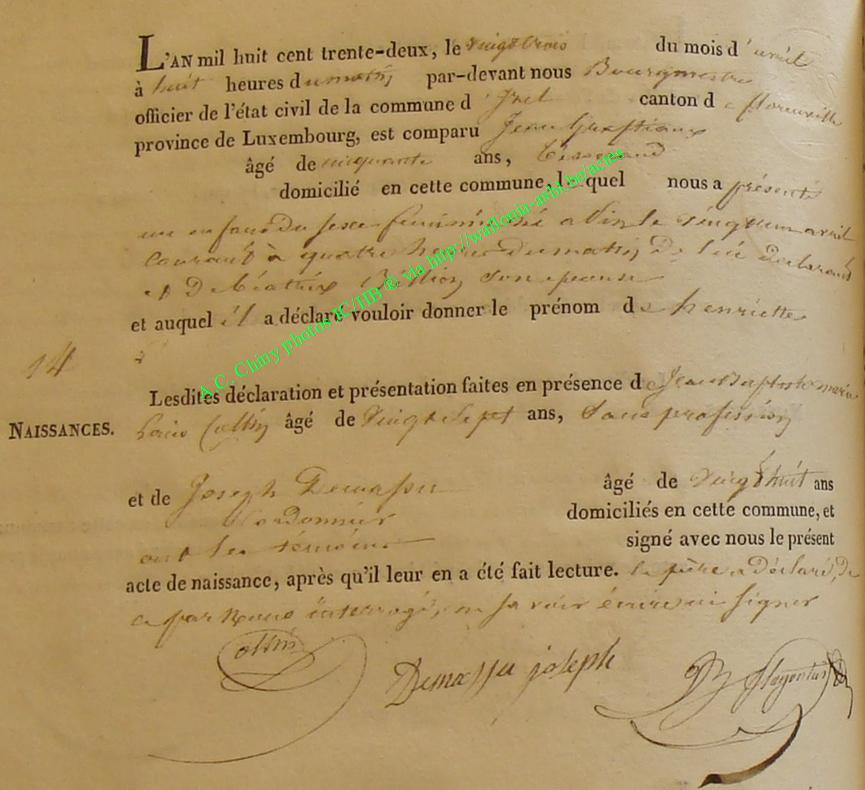 L'AN mil huit cent trente-deux, le vingt trois du mois d'avril
à huit heures du matin par-devant nous Bourgmestre
officier de l'état civil de la commune d' canton de florenville
province de Luxembourg, est comparu Jean
âgé de cinquante ans, tisserand
domicilié en cette commune, lequel nous a présenté
un enfant du sexe féminin né a le vingt un avril
courant à quatre heures du matin de lui déclarant
et de Béatrix son épouse
et auquel il a déclaré vouloir donner le prénom de henriette
14
Lesdites déclaration et présentation faites en présence de Jean Baptiste marie
NAISSANCES.
Louis Collin âgé de vingt sept ans, sans profession
et de Joseph âgé de vingt huit ans
Cordonnier domiciliés en cette commune, et
ont les témoins signé avec nous le présent
acte de naissance, après qu'il leur en a été fait lecture. le père a déclaré, de
ce par nous interrogé, ne savoir écrire ni signer
Collin
joseph
A.C. Chiny photos JC/HB © via http://wallonia-asbl.be/actes